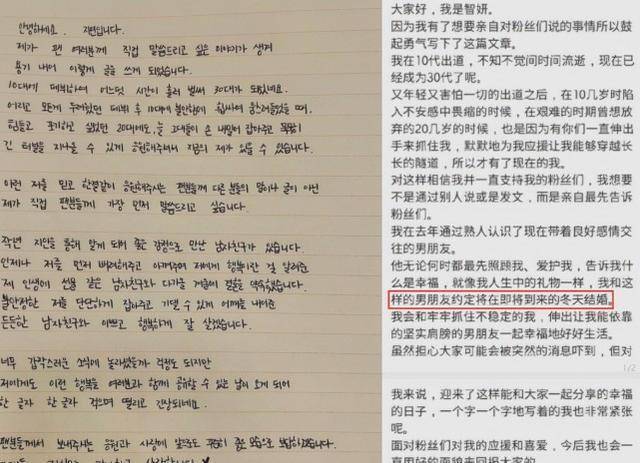 안녕하세요. 지연입니다.
제가 팬 여러분께 직접 말씀드리고 싶은 이야기가 생겨
용기 내어 이렇게 글을 쓰게 되었습니다.
10대에 데뷔하여 어느덧 시간이 흘러 벌써 30대가 되었네요.
어리고 모든게 두려웠던 데뷔 후 10대에 불안함에 휩싸여 움츠려들었을 때,
힘들고 포기하고 싶었던 20대에도, 늘 그대들이 손 내밀어 잡아주고 묵묵히
긴 터널을 지나올 수 있게 응원해주셔서 지금의 제가 있을 수 있습니다.
이런 저를 믿고 한결같이 응원해주시는 팬분들께 다른 분들의 말이나 글이 아닌
제가 직접 팬분들께 가장 먼저 말씀드리고 싶습니다.
작년 지인을 통해 알게 되어 좋은 감정으로 만난 남자친구가 있습니다.
언제나 저를 먼저 배려해주고 아껴주며 저에게 행복이란 걸 알려준
제 인생에 선물 같은 남자친구와 다가올 겨울에 결혼을 약속했습니다.
불안정한 저를 단단하게 잡아주고 기댈 수 있게 어깨를 내어준
든든한 남자친구와 이쁘고 행복하게 잘 살겠습니다.
너무 갑작스러운 소식에 놀라셨을까 걱정도 되지만
저에게도 이런 행복을 여러분과 함께 공유할 수 있는 날이 오게 되어
한 글자 한 글자 적으며 떨리고 긴장되네요.
팬분들께서 보내주시는 응원과 사랑에 앞으로도 꾸준히 좋은 모습으로 보답하겠습니다.
大家好，我是智妍。
因为我有了想要亲自对粉丝们说的事情所以鼓
起勇气写下了这篇文章。
我在10代出道，不知不觉间时间流逝，现在已
经成为30代了呢。
又年轻又害怕一切的出道之后，在10几岁时陷
入不安感中畏缩的时候，在艰难的时期曾想放
弃的20几岁的时候，也是因为有你们一直伸出
手来抓住我，默默地为我应援让我能够穿越长
长的隧道，所以才有了现在的我。
对这样相信我并一直支持我的粉丝们，我想要
不是通过别人说或是发文，而是亲自最先告诉
粉丝们。
我在去年通过熟人认识了现在带着良好感情交
往的男朋友。
他无论何时都最先照顾我、爱护我，告诉我什
么是幸福，就像我人生中的礼物一样，我和这
样的男朋友约定将在即将到来的冬天结婚。
我会和牢牢抓住不稳定的我，伸出让我能依靠
的坚实肩膀的男朋友一起幸福地好好生活。
虽然担心大家可能会被突然的消息吓到，但对
1/2
我来说，迎来了这样能和大家一起分享的幸福
的日子，一个字一个字地写着的我也非常紧张
呢。
面对粉丝们对我的应援和喜爱，今后我也会一